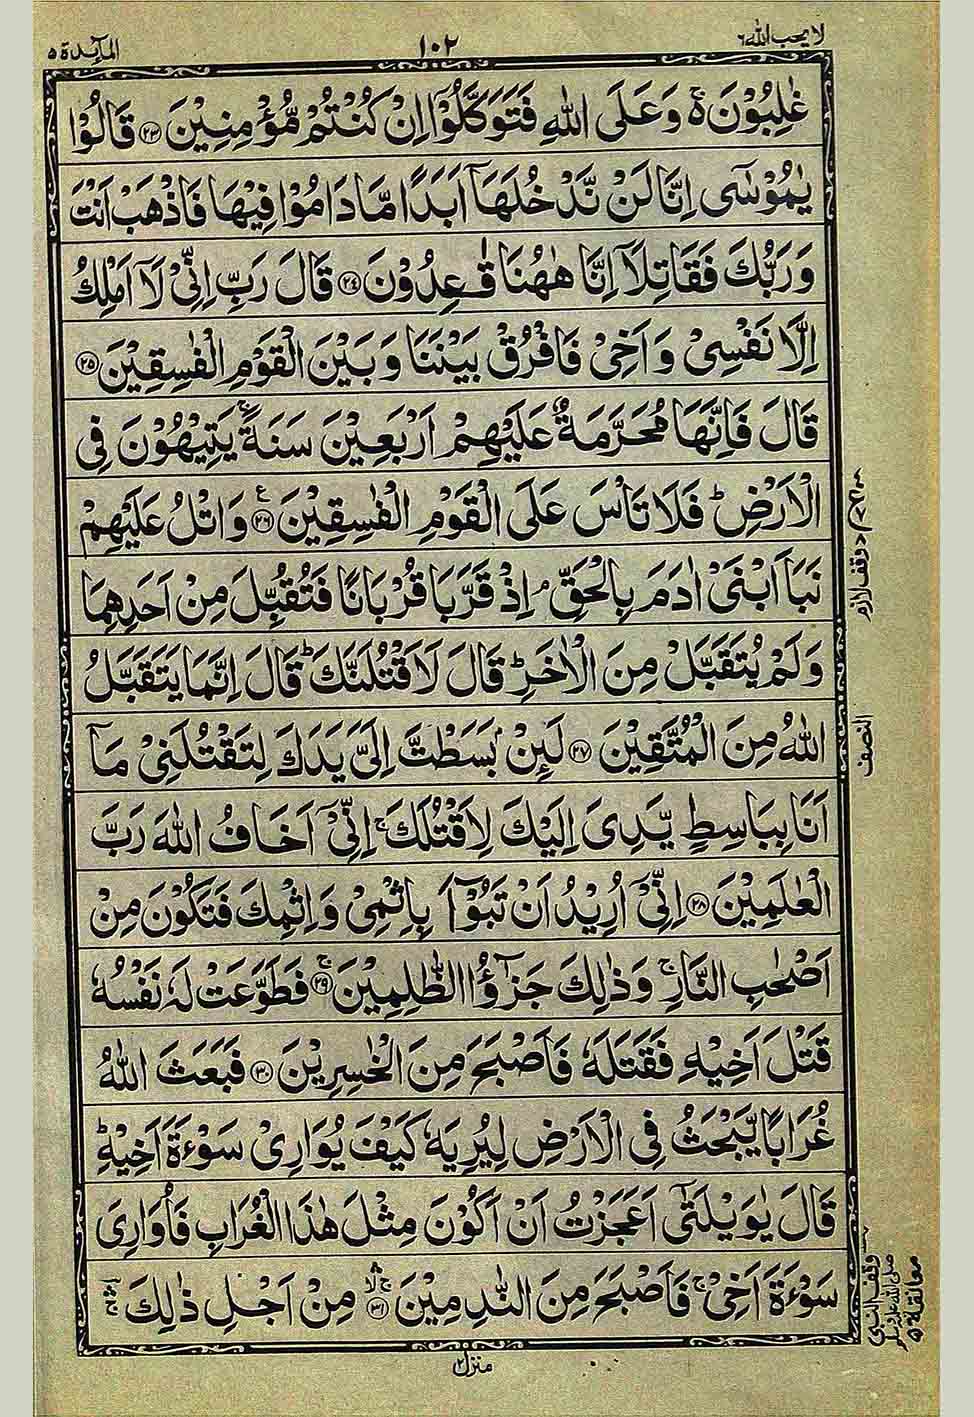 لا يحب الله ٦
١٠٢
المآئدة ٥
غٰلِبُوْنَ ۚ۬ وَعَلَى اللّٰهِ فَتَوَكَّلُوْۤا اِنْ كُنْتُمْ مُّؤْمِنِيْنَ ﴿٢٣﴾ قَالُوْا
يٰمُوْسٰٓى اِنَّا لَنْ نَّدْخُلَهَاۤ اَبَدًا مَّا دَامُوْا فِيْهَا فَاذْهَبْ اَنْتَ
وَرَبُّكَ فَقَاتِلَاۤ اِنَّا هٰهُنَا قٰعِدُوْنَ ﴿٢٤﴾ قَالَ رَبِّ اِنِّيْ لَاۤ اَمْلِكُ
اِلَّا نَفْسِيْ وَاَخِيْ فَافْرُقْ بَيْنَنَا وَبَيْنَ الْقَوْمِ الْفٰسِقِيْنَ ﴿٢٥﴾
قَالَ فَاِنَّهَا مُحَرَّمَةٌ عَلَيْهِمْ اَرْبَعِيْنَ سَنَةً ۚ يَتِيْهُوْنَ فِي
الْاَرْضِ ؕ فَلَا تَاْسَ عَلَى الْقَوْمِ الْفٰسِقِيْنَ ﴿٢٦﴾ ع وَاتْلُ عَلَيْهِمْ
نَبَاَ ابْنَيْ اٰدَمَ بِالْحَقِّ ۘ اِذْ قَرَّبَا قُرْبَانًا فَتُقُبِّلَ مِنْ اَحَدِهِمَا
وَلَمْ يُتَقَبَّلْ مِنَ الْاٰخَرِ ؕ قَالَ لَاَقْتُلَنَّكَ ؕ قَالَ اِنَّمَا يَتَقَبَّلُ
اللّٰهُ مِنَ الْمُتَّقِيْنَ ﴿٢٧﴾ لَئِنْۢ بَسَطْتَّ اِلَيَّ يَدَكَ لِتَقْتُلَنِيْ مَاۤ
اَنَا بِبَاسِطٍ يَّدِيَ اِلَيْكَ لِاَقْتُلَكَ ۚ اِنِّيْۤ اَخَافُ اللّٰهَ رَبَّ
الْعٰلَمِيْنَ ﴿٢٨﴾ اِنِّيْۤ اُرِيْدُ اَنْ تَبُوْٓاَ بِاِثْمِيْ وَاِثْمِكَ فَتَكُوْنَ مِنْ
اَصْحٰبِ النَّارِ ۚ وَذٰلِكَ جَزٰٓؤُا الظّٰلِمِيْنَ ﴿٢٩﴾ ۚ فَطَوَّعَتْ لَهٗ نَفْسُهٗ
قَتْلَ اَخِيْهِ فَقَتَلَهٗ فَاَصْبَحَ مِنَ الْخٰسِرِيْنَ ﴿٣٠﴾ فَبَعَثَ اللّٰهُ
غُرَابًا يَّبْحَثُ فِي الْاَرْضِ لِيُرِيَهٗ كَيْفَ يُوَارِيْ سَوْءَةَ اَخِيْهِ ؕ
قَالَ يٰوَيْلَتٰٓى اَعَجَزْتُ اَنْ اَكُوْنَ مِثْلَ هٰذَا الْغُرَابِ فَاُوَارِيَ
سَوْءَةَ اَخِيْ ۚ فَاَصْبَحَ مِنَ النّٰدِمِيْنَ ﴿٣١﴾ مِنْ اَجْلِ ذٰلِكَ
وقف لازم
النصف
وقف النبي صلى الله عليه وسلم
معانقة ٥
منزل ٢